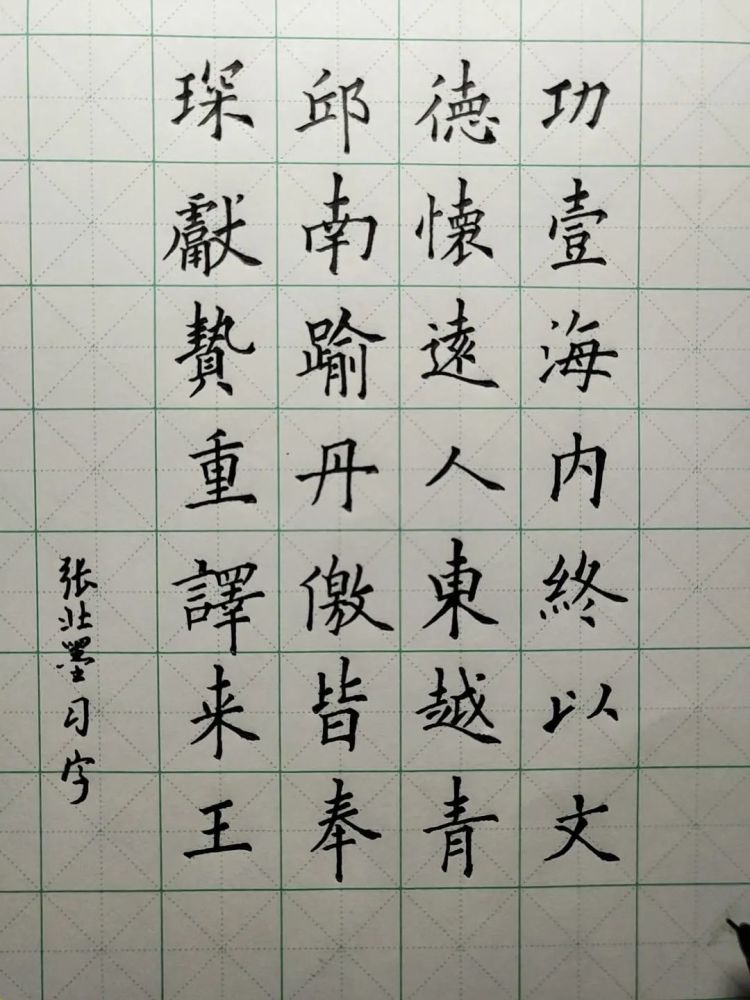 功壹海内終以文
德懷遠人東越青
邱南踰丹儌皆奉
琛獻贄重譯来王
张北墨习字